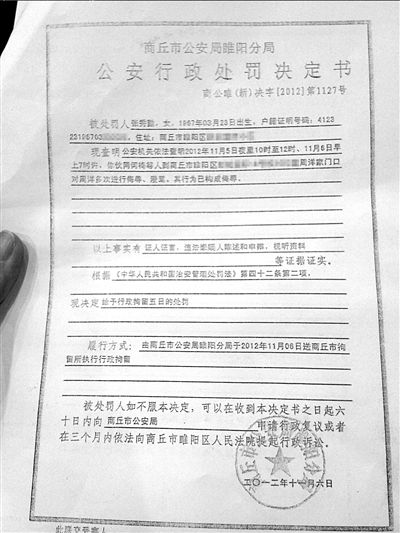 商丘市公安局睢阳分局
公安行政处罚决定书
商公睢(新)决字[2012]第1127号
被处罚人张秀勤，女，1967年03月23日出生，户籍证明号码：4123
23196703，住址：商丘市睢阳区
现查明公安机关依法查明2012年11月5日夜里10时至12时、11月6日早
上7时许，你伙同何艳等人到商丘市睢阳区周洋家门口
对周洋多次进行侮辱、谩骂，其行为已构成侮辱。
以上事实有 证人证言，违法嫌疑人陈述和申辩，视听资料
等证据证实。
根据《中华人民共和国治安管理处罚法》第四十二条第二项，
现决定 给予行政拘留五日的处罚
履行方式：由商丘市公安局睢阳分局于2012年11月06日送商丘市拘
留所执行行政拘留
被处罚人如不服本决定，可以在收到本决定书之日起六
十日内向 商丘市公安局 申请行政复议或者
在三个月内依法向商丘市睢阳区人民法院提起行政诉讼。
二〇一二年十一月六日